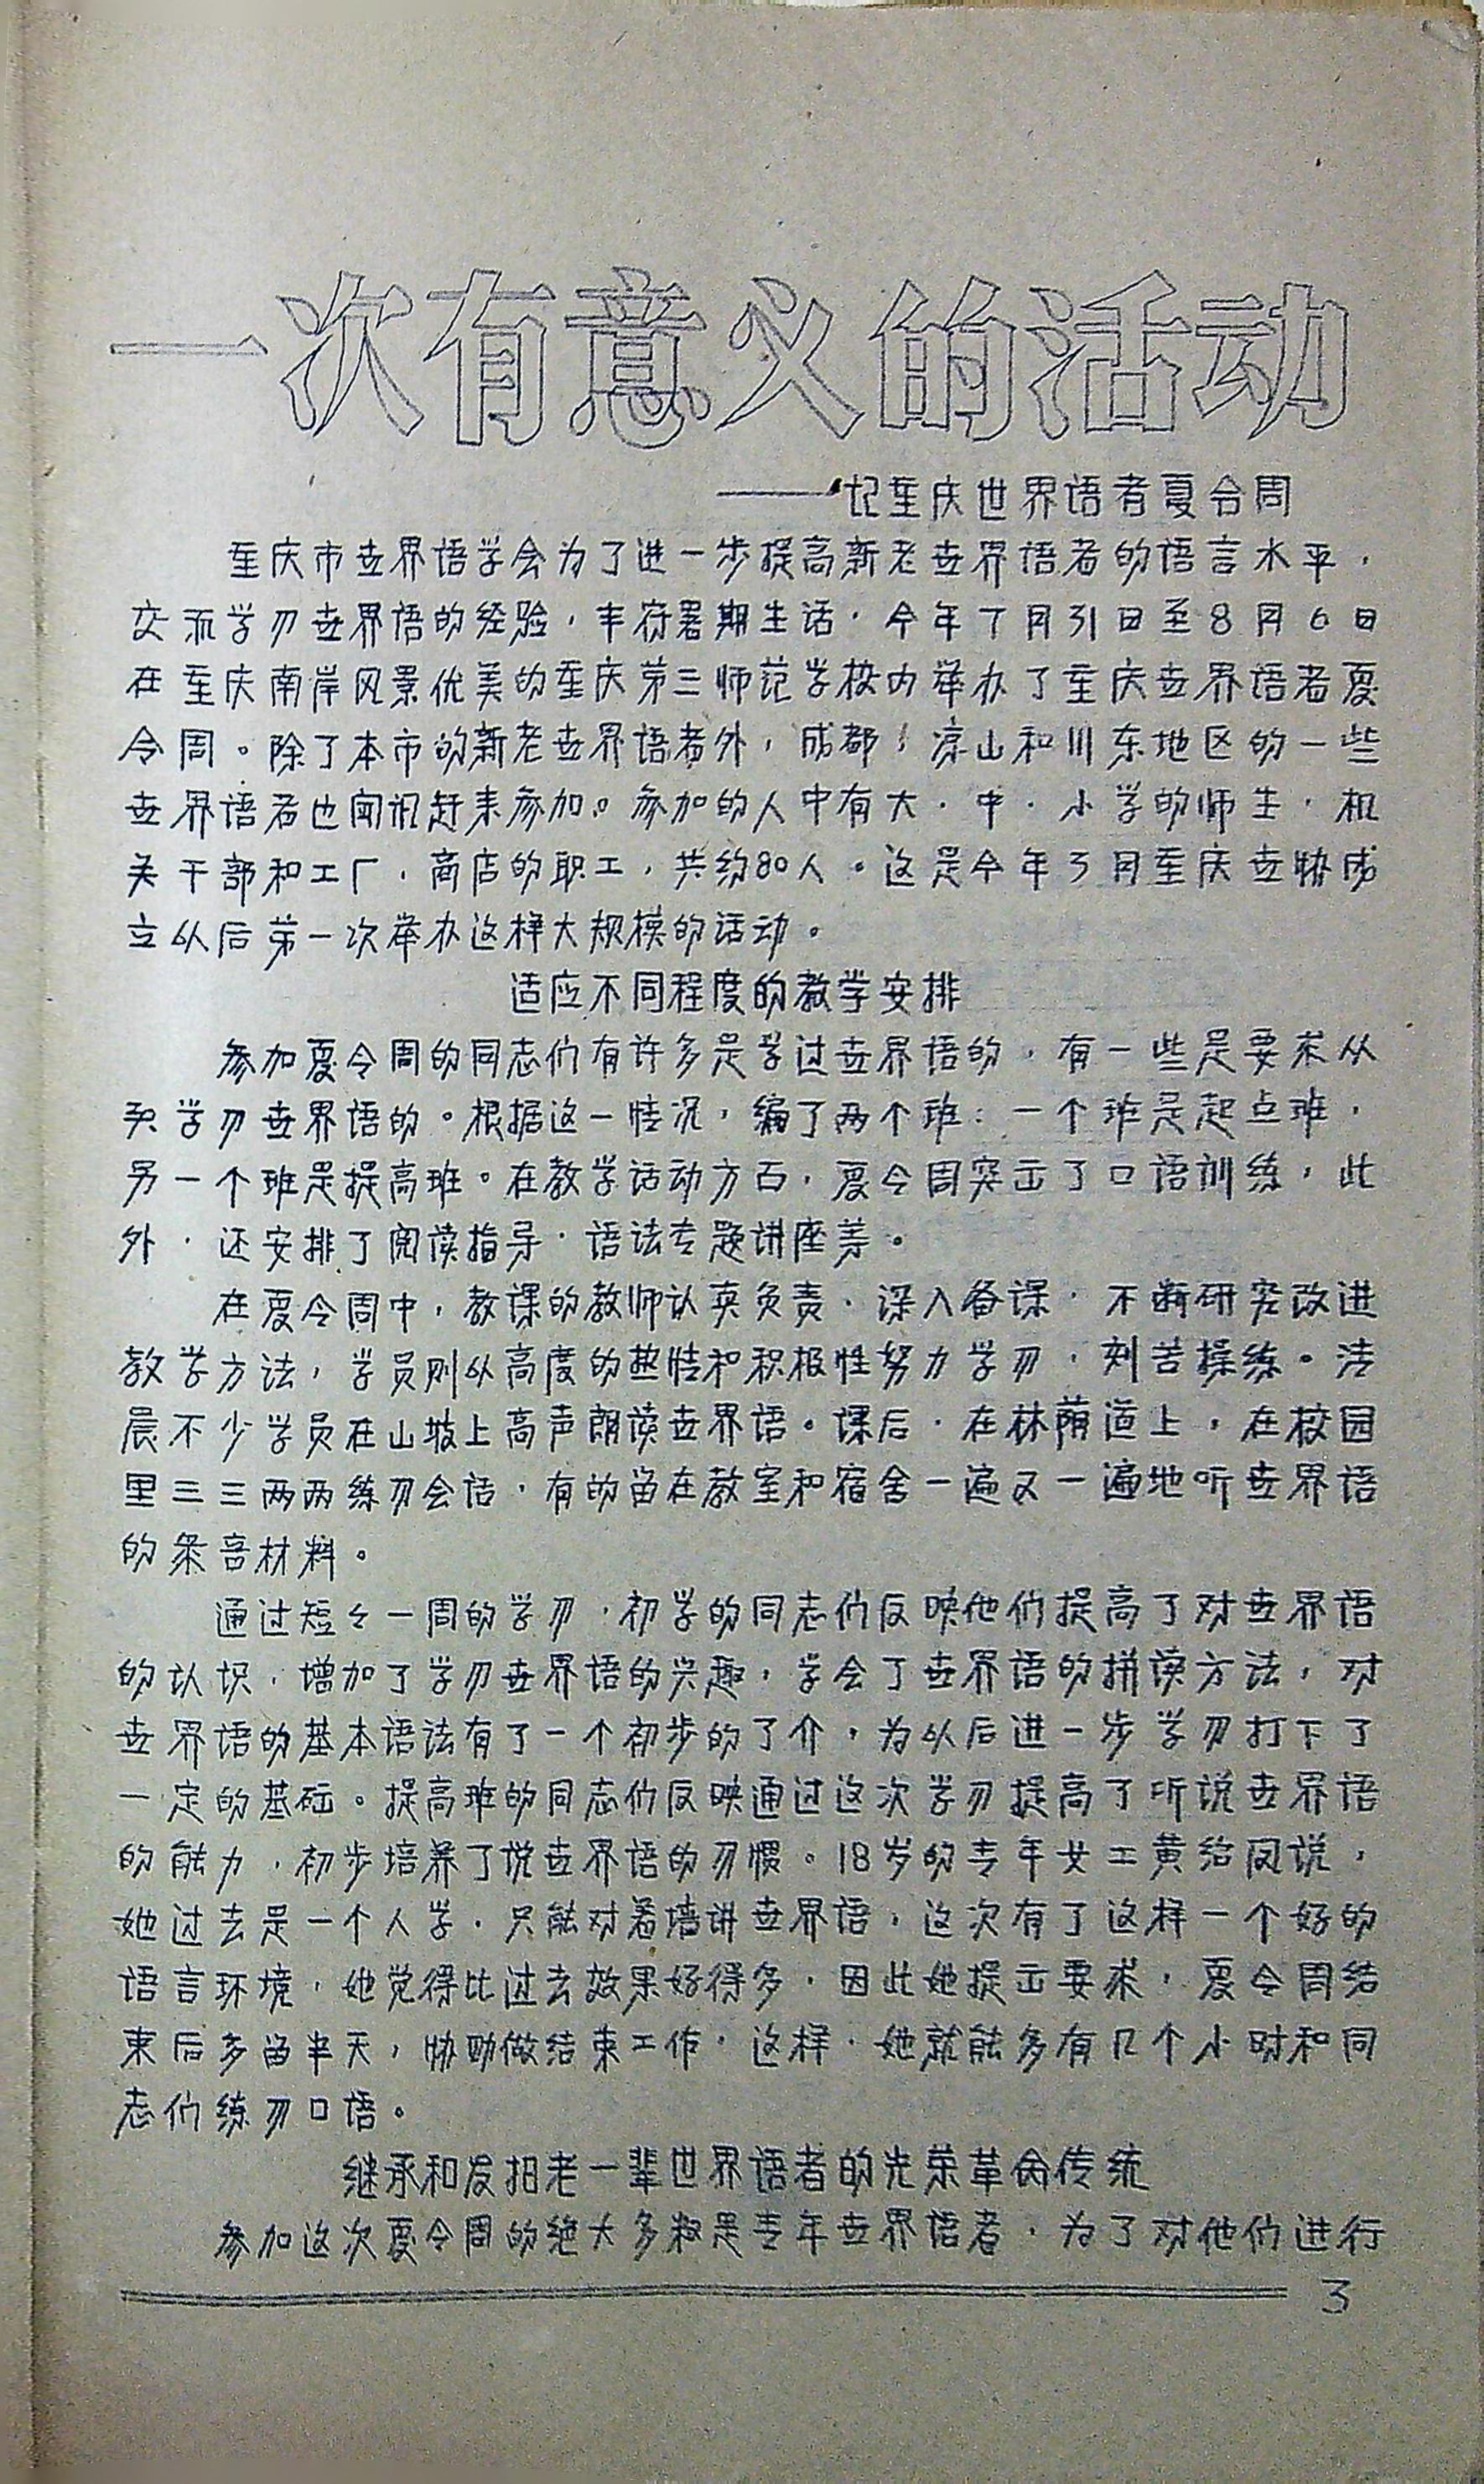 一次有意义的活动
——记重庆世界语者夏令周
重庆市世界语学会为了进一步提高新老世界语者的语言水平，
交流学习世界语的经验，丰富暑期生活，今年7月31日至8月6日
在重庆南岸风景优美的重庆第三师范学校内举办了重庆世界语者夏
令周。除了本市的新老世界语者外，成都、凉山和川东地区的一些
世界语者也闻讯赶来参加。参加的人中有大、中、小学的师生，机
关干部和工厂、商店的职工，共约80人。这是今年3月重庆世协成
立以后第一次举办这样大规模的活动。
适应不同程度的教学安排
参加夏令周的同志们有许多是学过世界语的，有一些是要求从
头学习世界语的。根据这一情况，编了两个班：一个班是起点班，
另一个班是提高班。在教学活动方面，夏令周突出了口语训练，此
外，还安排了阅读指导、语法专题讲座等。
在夏令周中，教课的教师认真负责，深入备课，不断研究改进
教学方法，学员则以高度的热情和积极性努力学习，刻苦操练。清
晨不少学员在山坡上高声朗读世界语。课后，在林荫道上，在校园
里三三两两练习会话，有的留在教室和宿舍一遍又一遍地听世界语
的录音材料。
通过短々一周的学习，初学的同志们反映他们提高了对世界语
的认识，增加了学习世界语的兴趣，学会了世界语的拼读方法，对
世界语的基本语法有了一个初步的了介，为以后进一步学习打下了
一定的基础。提高班的同志们反映通过这次学习提高了听说世界语
的能力，初步培养了说世界语的习惯。18岁的青年女工黄治凤说，
她过去是一个人学，只能对着墙讲世界语，这次有了这样一个好的
语言环境，她觉得比过去效果好得多，因此她提出要求，夏令周结
束后多留半天，协助做结束工作，这样，她就能多有几个小时和同
志们练习口语。
继承和发扬老一辈世界语者的光荣革命传统
参加这次夏令周的绝大多数是青年世界语者，为了对他们进行
3